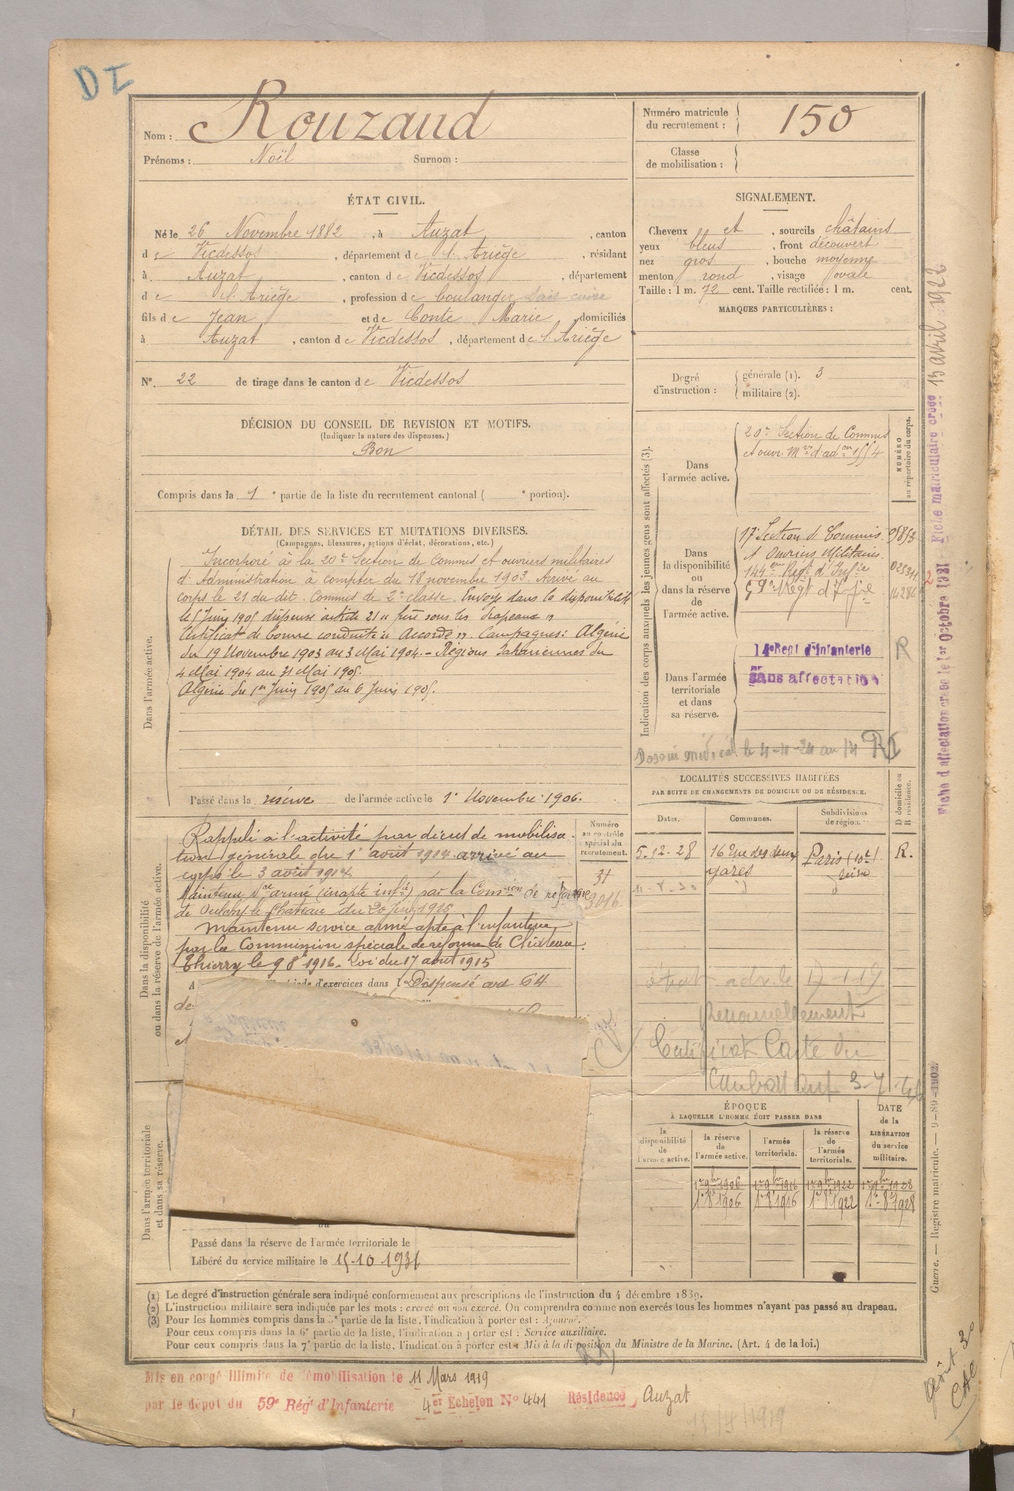 DI
Nom : Rouzaud
Prénoms : Noël Surnom :
Numéro matricule du recrutement : 150
Classe de mobilisation :
ÉTAT CIVIL.
Né le 26 Novembre 1882, à Auzat, canton
de Vicdessos, département de l'Ariège, résidant
à Auzat, canton de Vicdessos, département
de l'Ariège, profession de boulanger
fils de Jean et de Conte Marie, domiciliés
à Auzat, canton de Vicdessos, département de l'Ariège
N° 22 de tirage dans le canton de Vicdessos
SIGNALEMENT.
Cheveux et, sourcils châtains
yeux bleus, front découvert
nez gros, bouche moyenne
menton rond, visage ovale
Taille : 1 m. 72 cent. Taille rectifiée : 1 m. cent.
MARQUES PARTICULIÈRES :
Degré d'instruction : générale (1). 3
militaire (2).
DÉCISION DU CONSEIL DE REVISION ET MOTIFS.
(Indiquer la nature des dispenses.)
Bon
Compris dans la 1e partie de la liste du recrutement cantonal ( e portion).
DÉTAIL DES SERVICES ET MUTATIONS DIVERSES.
(Campagnes, blessures, actions d'éclat, décorations, etc.)
Dans l'armée active.
Incorporé à la 20e Section de Commis et ouvriers militaires
d'Administration à compter du 18 novembre 1903. Arrivé au
corps le 21 du dit. Commis de 2e classe. Envoyé dans la disponibilité
le 5 Juin 1905 dispensé article 21 frère sous les drapeaux
Certificat de bonne conduite "Accordé". Campagnes : Algérie
du 19 Novembre 1903 au 3 Mai 1904. - Régions Sahariennes du
4 Mai 1904 au 31 Mai 1905.
Algérie du 1er Juin 1905 au 6 Juin 1905.
Passé dans la réserve de l'armée active le 1er Novembre 1906.
Indication des corps auxquels les jeunes gens sont affectés (3).
NUMÉRO au répertoire du corps.
Dans l'armée active.
20e Section de Commis
et ouvr. Mres d'adon
Dans la disponibilité ou dans la réserve de l'armée active.
17 Section d Commis
& Ouvriers Militaires
144me Régt d'Infie
59e Régt d'Infie
Dans l'armée territoriale et dans sa réserve.
14e Regt d'Infanterie
Sans affectation
R
Dossier médical le 4-4-24 au
LOCALITÉS SUCCESSIVES HABITÉES
PAR SUITE DE CHANGEMENTS DE DOMICILE OU DE RÉSIDENCE.
Dates. Communes. Subdivisions de région. D domicile ou R résidence.
5-12-28 16 Rue des deux gares Paris (10e) Seine R.
11-8-30
Renouvellement
Certificat Carte du
Combattant 3-7
Dans la disponibilité ou dans la réserve de l'armée active.
Numéro au contrôle spécial du recrutement.
Rappelé à l'activité par décret de mobilisa-
tion générale du 1er août 1914 arrivé au
corps le 3 août 1914
Maintenu Sce armé (inapte inftie) par la Comon de réforme
de Oulchy le Chateau du 20 Juin 1915
Maintenu service armé apte à l'infanterie
par la Commission spéciale de réforme de Château
Thierry le 9 8 1916. Loi du 17 août 1915
d'exercices dans Dispensé art 64
Dans l'armée territoriale et dans sa réserve.
Passé dans la réserve de l'armée territoriale le
Libéré du service militaire le 15-10 1931
ÉPOQUE
À LAQUELLE L'HOMME DOIT PASSER DANS
la disponibilité de l'armée active. la réserve de l'armée active. l'armée territoriale. la réserve de l'armée territoriale.
DATE de la LIBÉRATION du service militaire.
1er 9bre 1906 1er 9bre 1916 1er 9bre 1922 1er 9bre 1928
1er 8e 1906 1er 8e 1916 1er 8e 1922 1er 8e 1928
(1) Le degré d'instruction générale sera indiqué conformément aux prescriptions de l'instruction du 4 décembre 1889.
(2) L'instruction militaire sera indiquée par les mots : exercé ou non exercé. On comprendra comme non exercés tous les hommes n'ayant pas passé au drapeau.
(3) Pour les hommes compris dans la 5e partie de la liste, l'indication à porter est : Ajourné.
Pour ceux compris dans la 6e partie de la liste, l'indication à porter est : Service auxiliaire.
Pour ceux compris dans la 7e partie de la liste, l'indication à porter est : Mis à la disposition du Ministre de la Marine. (Art. 4 de la loi.)
Mis en congé illimité de démobilisation le 11 Mars 1919
par le dépôt du 59e Régt d'Infanterie 4e Echelon N° 441 Résidence Auzat
15/4/1919
Fiche d'affectation créée le 1er Octobre 1921 Fiche matriculaire créée 15 avril 1922
Guerre. — Registre matricule. — 9-89-1902
Août 30